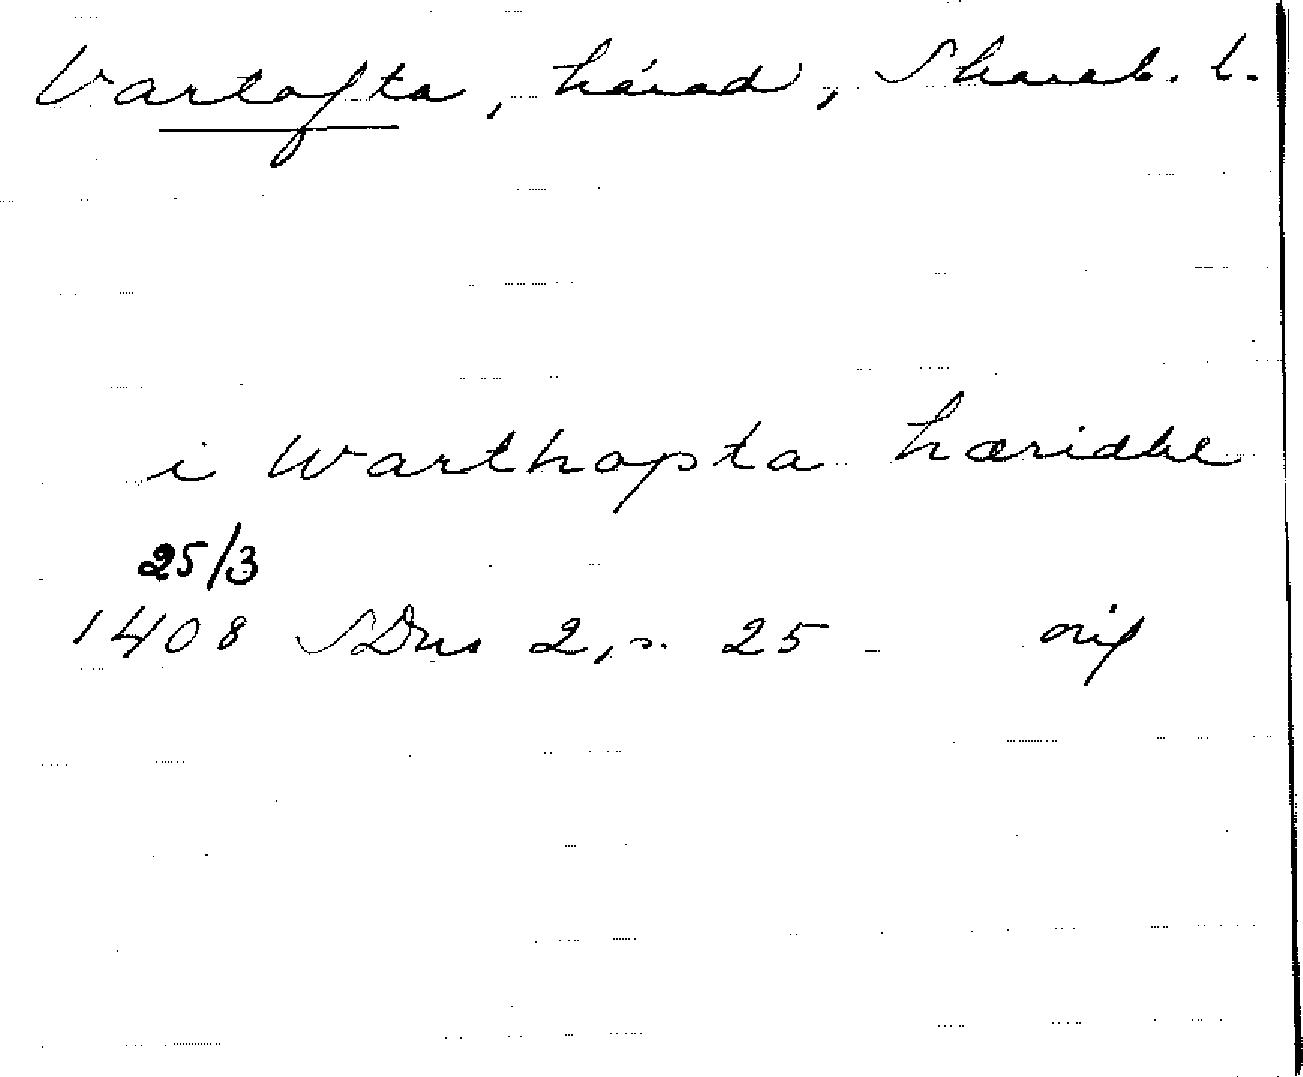 Vartofta, härad, Skarab. l.
i Warthopta hæridhe
25/3
1408 SDns 2, s. 25 - orig